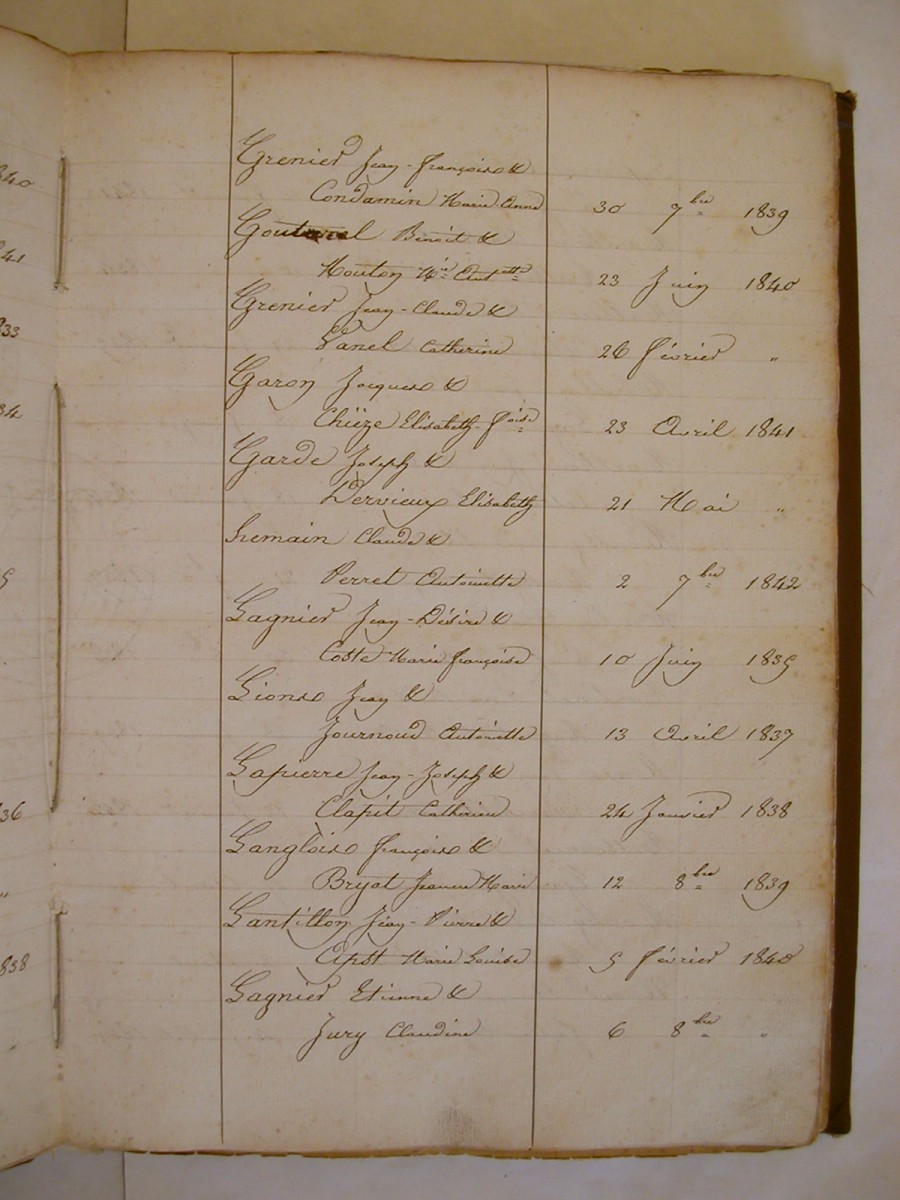 840
Grenier Jean-françois &
Condamin Marie Anne 30 7bre 1839
Goutarel Benoit &
41
Mouton Mie Antette 23 Juin 1840
Grenier Jean-Claude &
833
Vanel Catherine 26 février "
Garon Jacques &
34
Chüze Elisabeth-foise 23 Avril 1841
Garde Joseph &
Dervieux Elisabeth 21 Mai "
Lemain Claude &
5
Perret Antoinette 2 7bre 1842
Gagnier Jean-Désiré &
Coste Marie françoise 10 Juin 1835
Lions Jean &
Journoud Antoinette 13 Avril 1837
Lapierre Jean-Joseph &
836
Clapit Catherine 24 Janvier 1838
Langlois françois &
"
Bryat Jeanne Marie 12 8bre 1839
Lantillon Jean-Pierre &
838
Apst Marie Louise 5 février 1840
Gagnier Etienne &
Jury Claudine 6 8bre "